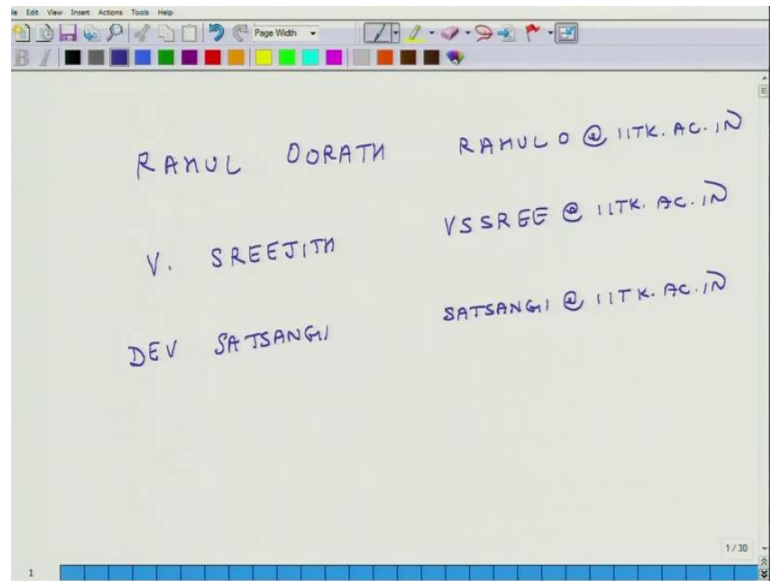 le Edit View Insert Actions Tools Help
Page Width
B I
RAHUL OORATH RAHULO@IITK.AC.IN
V. SREEJITH VSSREE@IITK.AC.IN
DEV SATSANGI SATSANGI@IITK.AC.IN
1 / 30
1